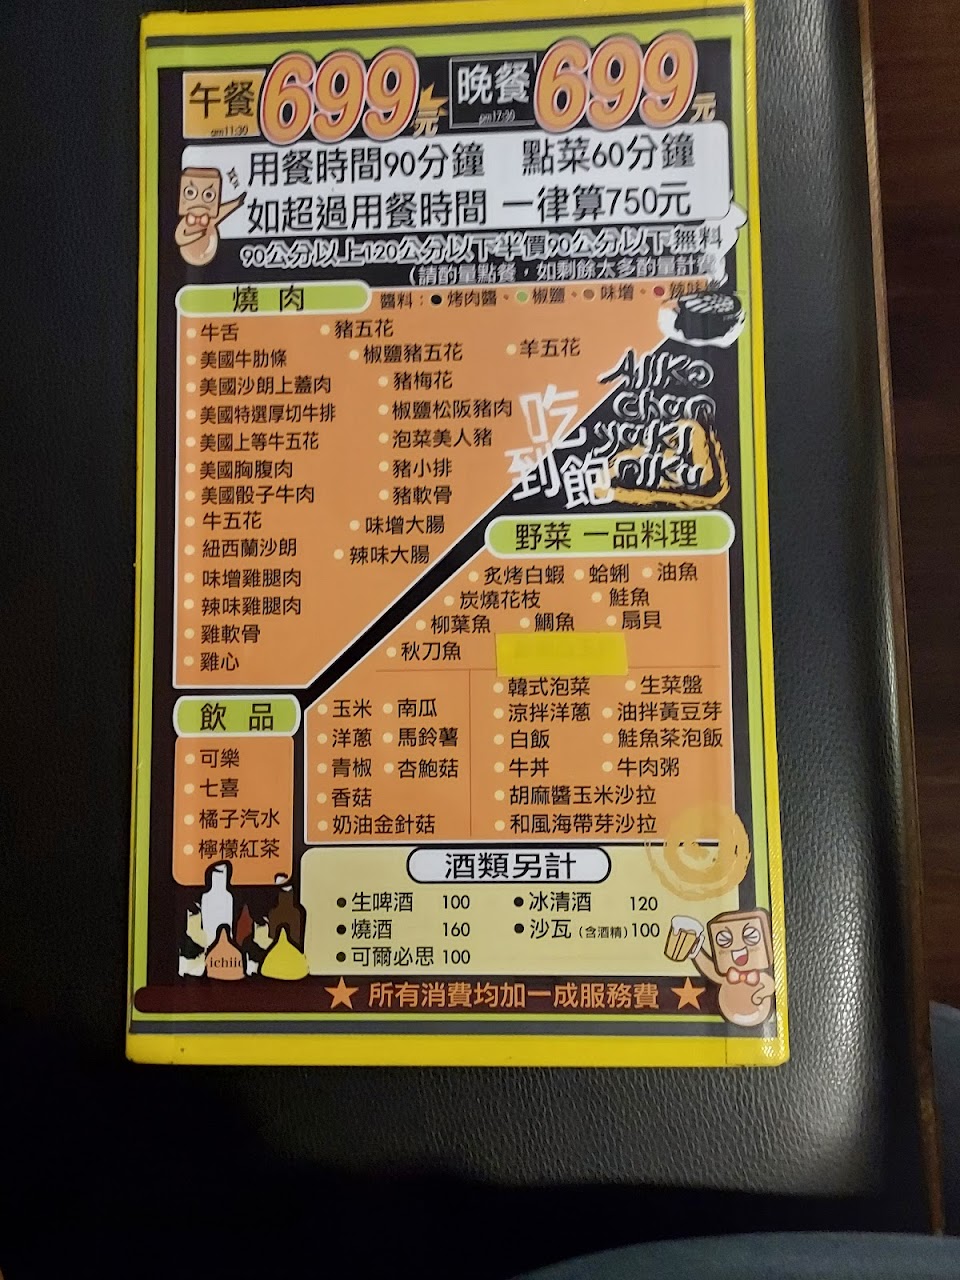 午餐 699元 晚餐 699元
am11:30 pm17:30
用餐時間90分鐘 點菜60分鐘
如超過用餐時間 一律算750元
90公分以上120公分以下半價90公分以下無料
(請酌量點餐，如剩餘太多酌量計費
燒肉
醬料：●烤肉醬、●椒鹽、●味增、●辣味
牛舌
美國牛肋條
美國沙朗上蓋肉
美國特選厚切牛排
美國上等牛五花
美國胸腹肉
美國骰子牛肉
牛五花
紐西蘭沙朗
味增雞腿肉
辣味雞腿肉
雞軟骨
雞心
豬五花
椒鹽豬五花
羊五花
豬梅花
椒鹽松阪豬肉
泡菜美人豬
豬小排
豬軟骨
味增大腸
辣味大腸
吃到飽
野菜 一品料理
炙烤白蝦 蛤蜊 油魚
炭燒花枝 鮭魚
柳葉魚 鯛魚 扇貝
秋刀魚
玉米 南瓜
洋蔥 馬鈴薯
青椒 杏鮑菇
香菇
奶油金針菇
韓式泡菜 生菜盤
涼拌洋蔥 油拌黃豆芽
白飯 鮭魚茶泡飯
牛丼 牛肉粥
胡麻醬玉米沙拉
和風海帶芽沙拉
飲品
可樂
七喜
橘子汽水
檸檬紅茶
酒類另計
生啤酒 100 冰清酒 120
燒酒 160 沙瓦(含酒精)100
可爾必思 100
ichiic
★ 所有消費均加一成服務費 ★